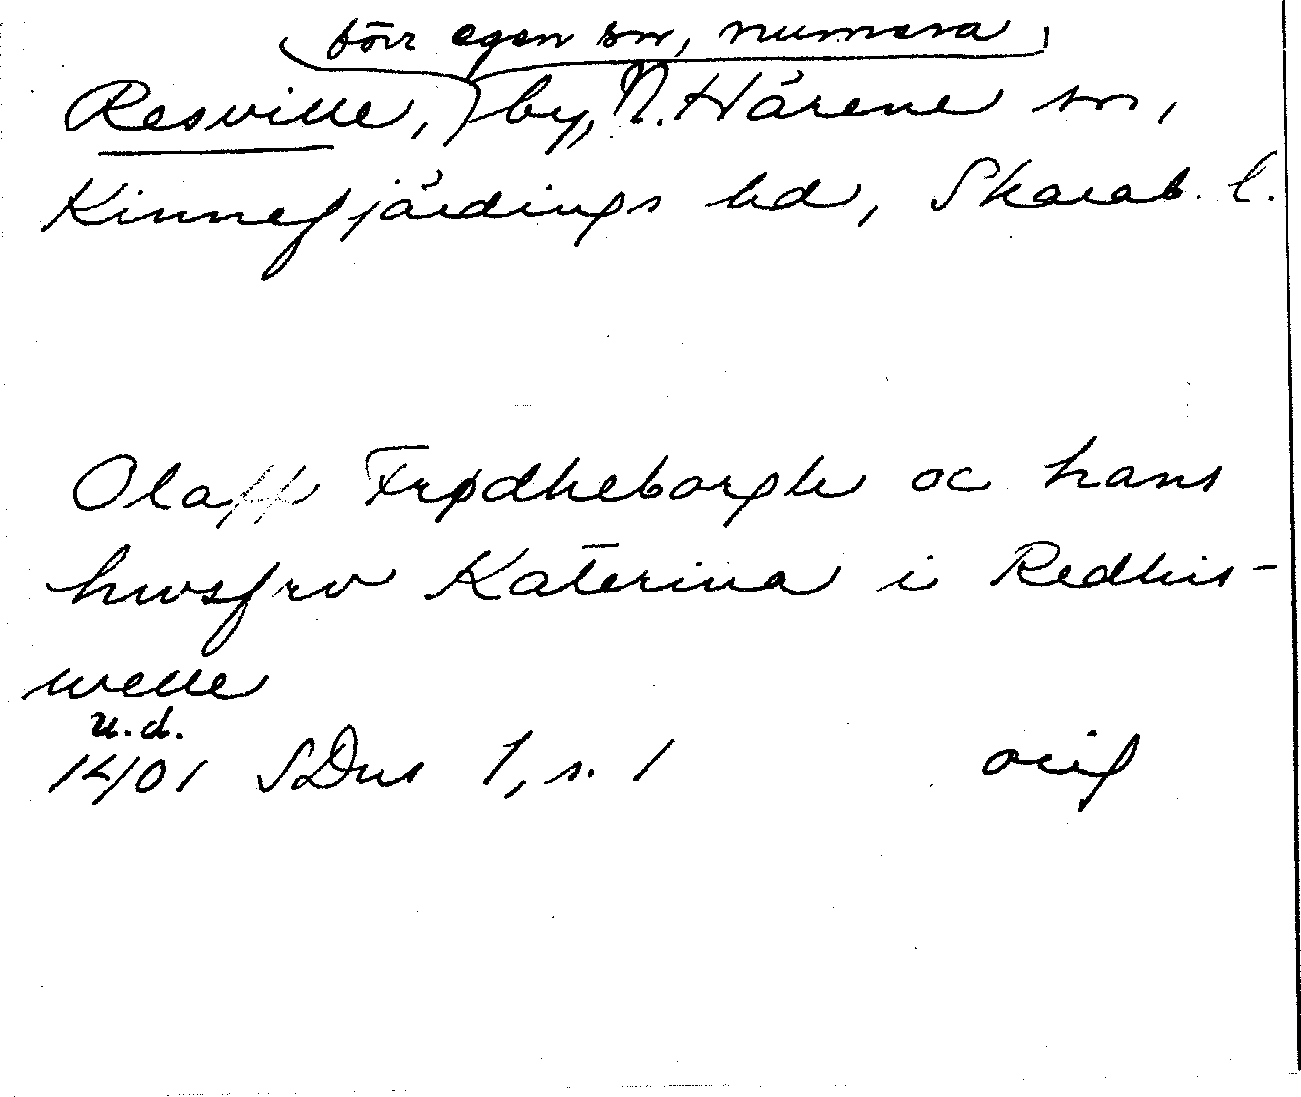 förr egen sn, numera
Resville, by, N. Härene sn,
Kinnefjärdings hd, Skarab. l.
Olaff Frødheborgh oc hans
hwsfrv Katerina i Redhis-
welle
u.d.
1401 SDns 1, s. 1 orig